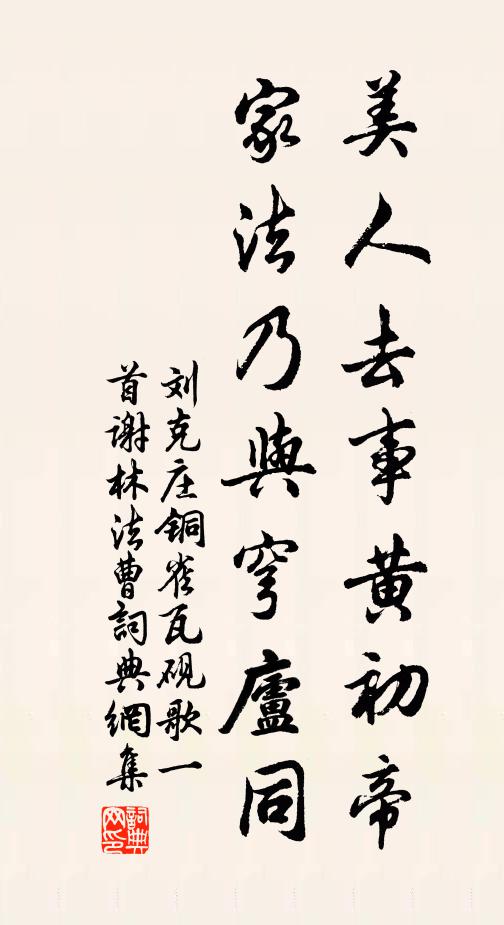 美人去事黄初帝
家法乃與穹廬同
刘克庄铜雀瓦砚歌一
首谢林法曹詞典網集
詞典
网印